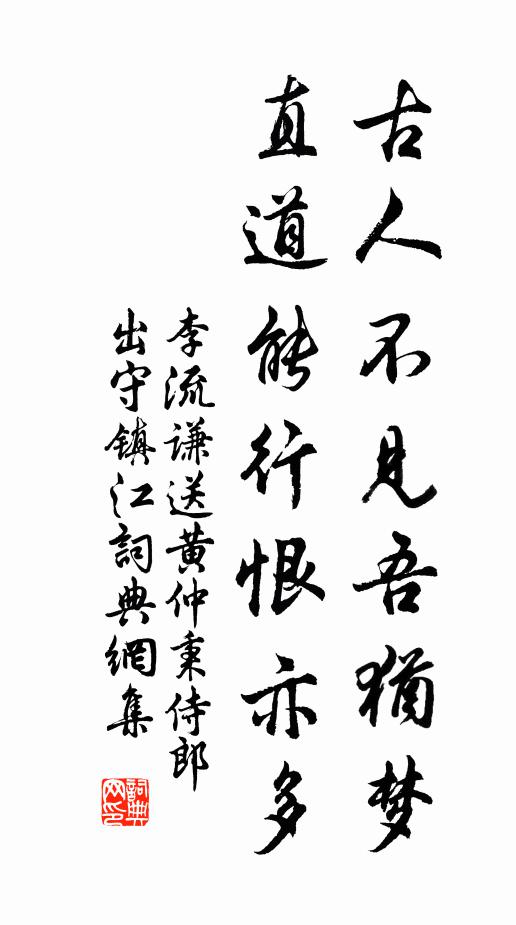 古人不见吾犹梦
直道能行恨亦多
李流谦送黄仲秉侍郎
出守镇江词典網集
詞典
网印